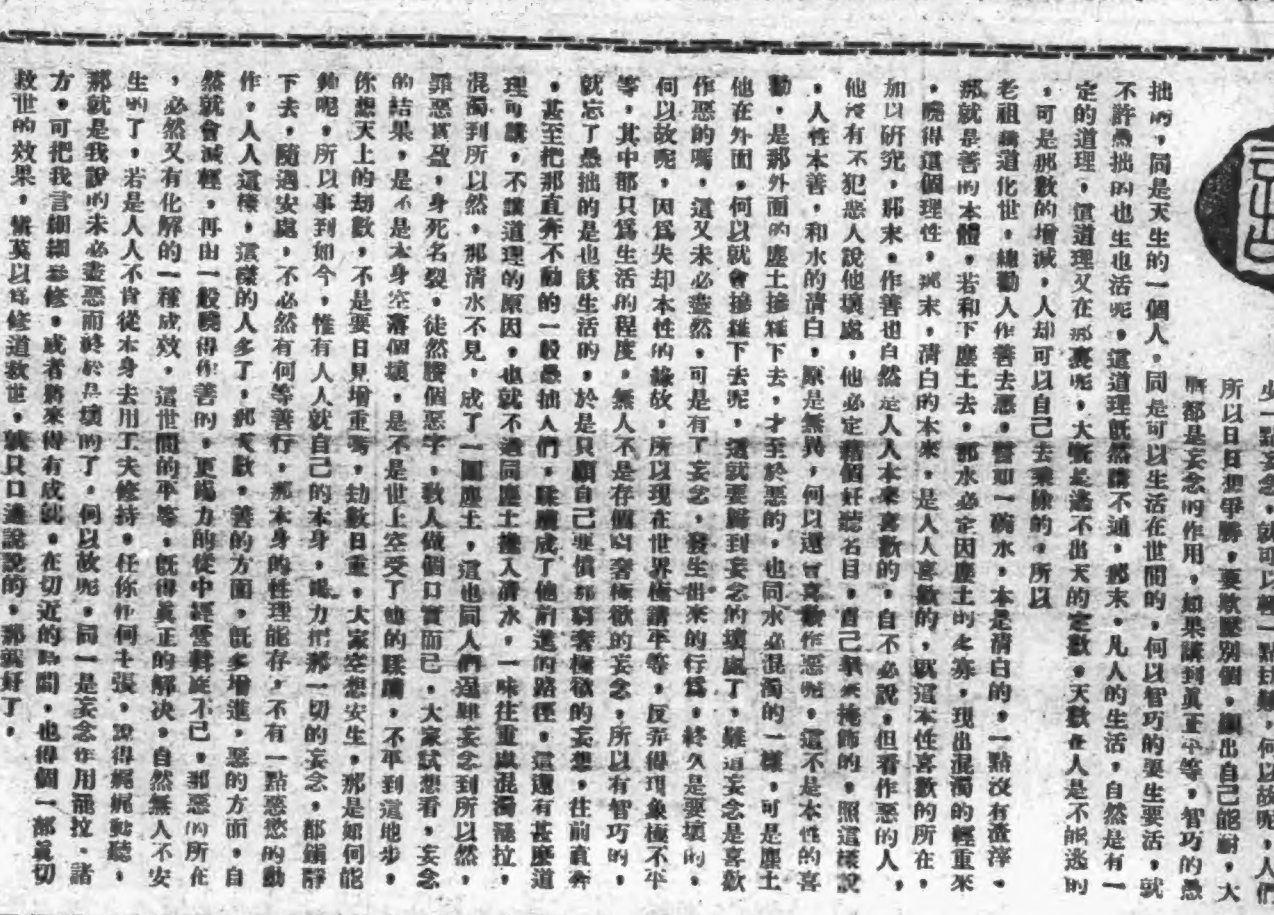 必一點妄念，就可以輕一點
何以故呢，人們
所以日日想爭勝，要欺壓別個，顯出自己能耐，大
都是妄念的作用，如果講到眞正平等，智巧的愚
拙的，同是天生的一個人，同是可以生活在世間的，何以智巧的要生要活，就
不許愚拙的也生也活呢，這道理旣然講不通，那末，凡人的生活，自然是有一
定的道理，這道理又在那裏呢，大槪是逃不出天的定數，天數在人是不能逃的
，可是那數的增減，人却可以自己去乘除的，所以
老祖講道化世，總勸人作善去惡，譬如一碗水，本是清白的，一點沒有渣滓，
那就是善的本體，若和下塵土去，那水必定因塵土的多寡，現出混濁的輕重來
，曉得這個理性，那末，清白的本來，是人人喜歡的，就這本性喜歡的所在，
加以研究，那末，作善也自然是人人本來喜歡的，自不必說，但看作惡的人，
他沒有不犯惡人說他壞處，他必定藉個好聽名目，自己拿來掩飾的，照這樣說
，人性本善，和水的清白，原是無異，何以還會喜歡作惡呢，這不是本性的喜
歡，是那外面的塵土摻雜下去，才至於惡的，也同水必混濁的一樣，可是塵土
他在外面，何以就會摻雜下去呢，這就要歸到妄念的壞處了，難道妄念是喜歡
作惡的嗎，這又未必盡然，可是有了妄念，發生出來的行爲，終久是要壞的，
何以故呢，因爲失却本性的緣故，所以現在世界極講平等，反弄得現象極不平
等，其中都只爲生活的程度，無人不是存個窮奢極欲的妄念，所以有智巧的，
就忘了愚拙的是也該生活的，於是只顧自己要償那窮奢極欲的妄想，往前直奔
，甚至把那直奔不動的一般愚拙人們，蹂躪成了他前進的路徑，這還有甚麼道
理可講，不講道理的原因，也就不過同塵土攙入清水，一味往重處混濁罷拉，
混濁到所以然，那清水不見，成了一團塵土，這也同人們逞肆妄念到所以然，
罪惡貫盈，身死名裂，徒然賸個惡字，敎人做個口實而已，大家試想看，妄念
的結果，是不是本身空落個壞，是不是世上空受了他的蹂躪，不平到這地步，
你想天上的劫數，不是要日見增重嗎，劫數日重，大家空想安生，那是如何能
夠呢，所以事到如今，惟有人人就自己的本身，竭力把那一切的妄念，都鎮靜
下去，隨遇安處，不必然有何等善行，那本身的性理能存，不有一點惡慾的動
作，人人這樣，這樣的人多了，那天數，善的方面，旣多增進，惡的方面，自
然就會減輕，再由一般曉得作善的，更竭力的從中經營斡旋不已，那惡的所在
，必然又有化解的一種成效，這世間的平等，旣得眞正的解决，自然無人不安
生的了，若是人人不肯從本身去用工夫修持，任你作何主張，說得娓娓動聽，
那就是我說的未必盡惡而終於是壞的了，何以故呢，同一是妄念作用罷拉，諸
方，可把我言細細參修，或者將來得有成就，在切近的時間，也得個一部眞切
救世的效果，愼莫以爲修道救世，就只口邊說說的，那就好了，